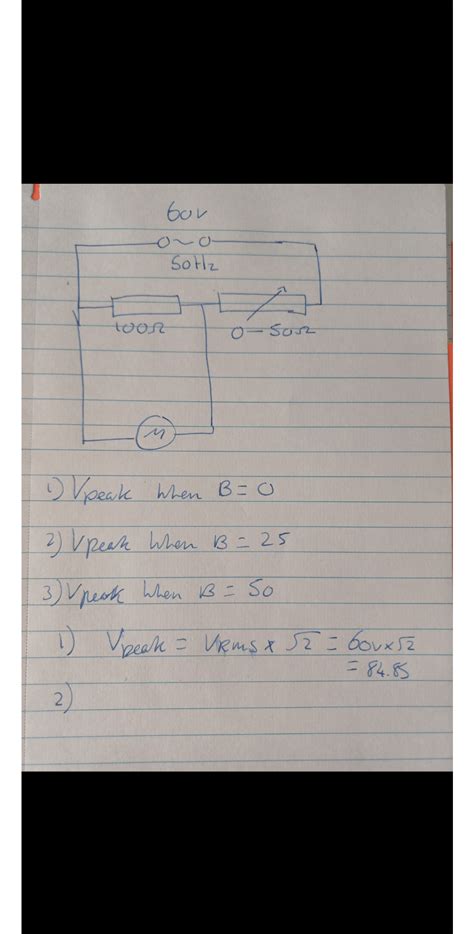 60V
50Hz
100Ω
0-50Ω
M
1) Vpeak when B = 0
2) Vpeak when B = 25
3) Vpeak when B = 50
1) Vpeak = VRMS x √2 = 60V x √2
= 84.85
2)